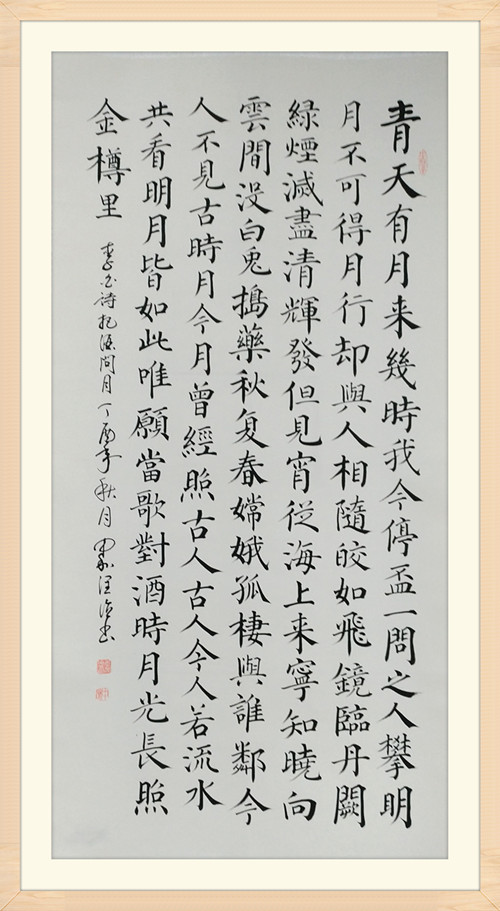 青天有月来幾時我今停盃一問之人攀明
月不可得月行却與人相隨皎如飛鏡臨丹闕
緑煙滅盡清輝發但見宵從海上来寧知曉向
雲間没白兎搗藥秋复春嫦娥孤棲與誰鄰今
人不見古時月今月曾經照古人古人今人若流水
共看明月皆如此唯願當歌對酒時月光長照
金樽里
李白诗把酒问月丁酉年秋月